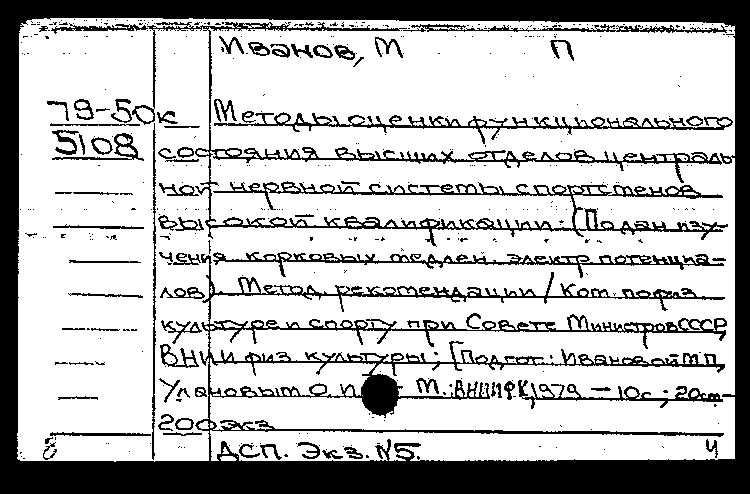 Иванов, М П
79-50к Методы оценки функционального
5108 состояния высших отделов централь-
ной нервной системы спортсменов
высокой квалификации: (По дан изу-
чения корковых медлен. электр потенциа-
лов). Метод рекомендации / Ком. по физ
культуре и спорту при Совете Министров СССР,
ВНИИ физ культуры; [Подгот: Ивановой М П,
Улановым О. И М.: ВНИИФК, 1979 — 10с; 20см-
200 экз
8 ДСП. Экз. №5. Ч